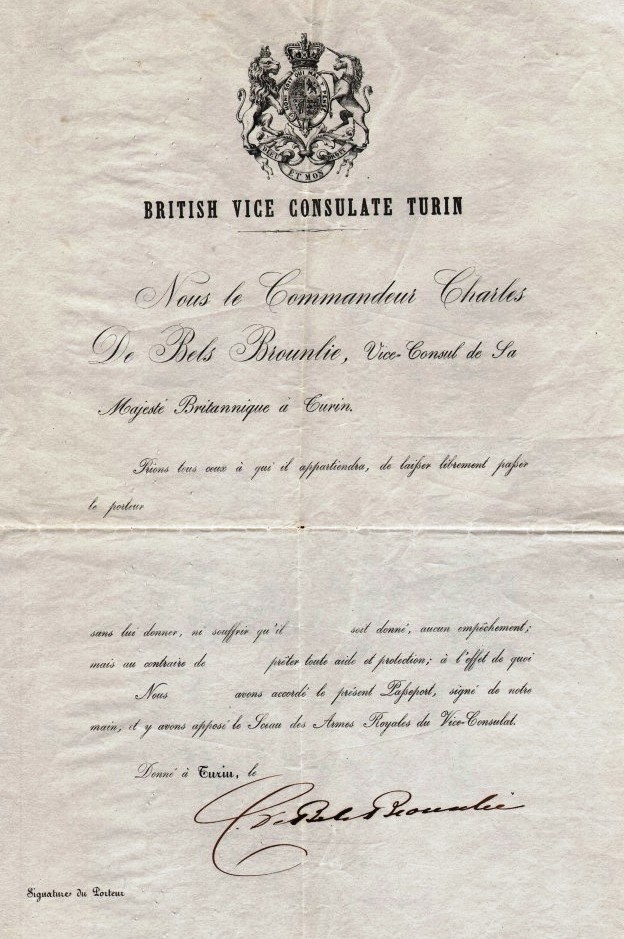 HONI SOIT QUI MAL Y PENSE
DIEU ET MON DROIT
BRITISH VICE CONSULATE TURIN
Nous le Commandeur Charles
De Bels Brounlie, Vice-Consul de Sa
Majesté Britannique à Turin.
Prions tous ceux à qui il appartiendra, de laißer librement paßer
le porteur
sans lui donner, ni souffrir qu'il soit donné, aucun empêchement;
mais au contraire de prêter toute aide et protection; à l'effet de quoi
Nous avons accordé le présent Paßeport, signé de notre
main, et y avons apposé le Sceau des Armes Royales du Vice-Consulat.
Donné à Turin, le
C. De Bels Brounlie
Signature du Porteur